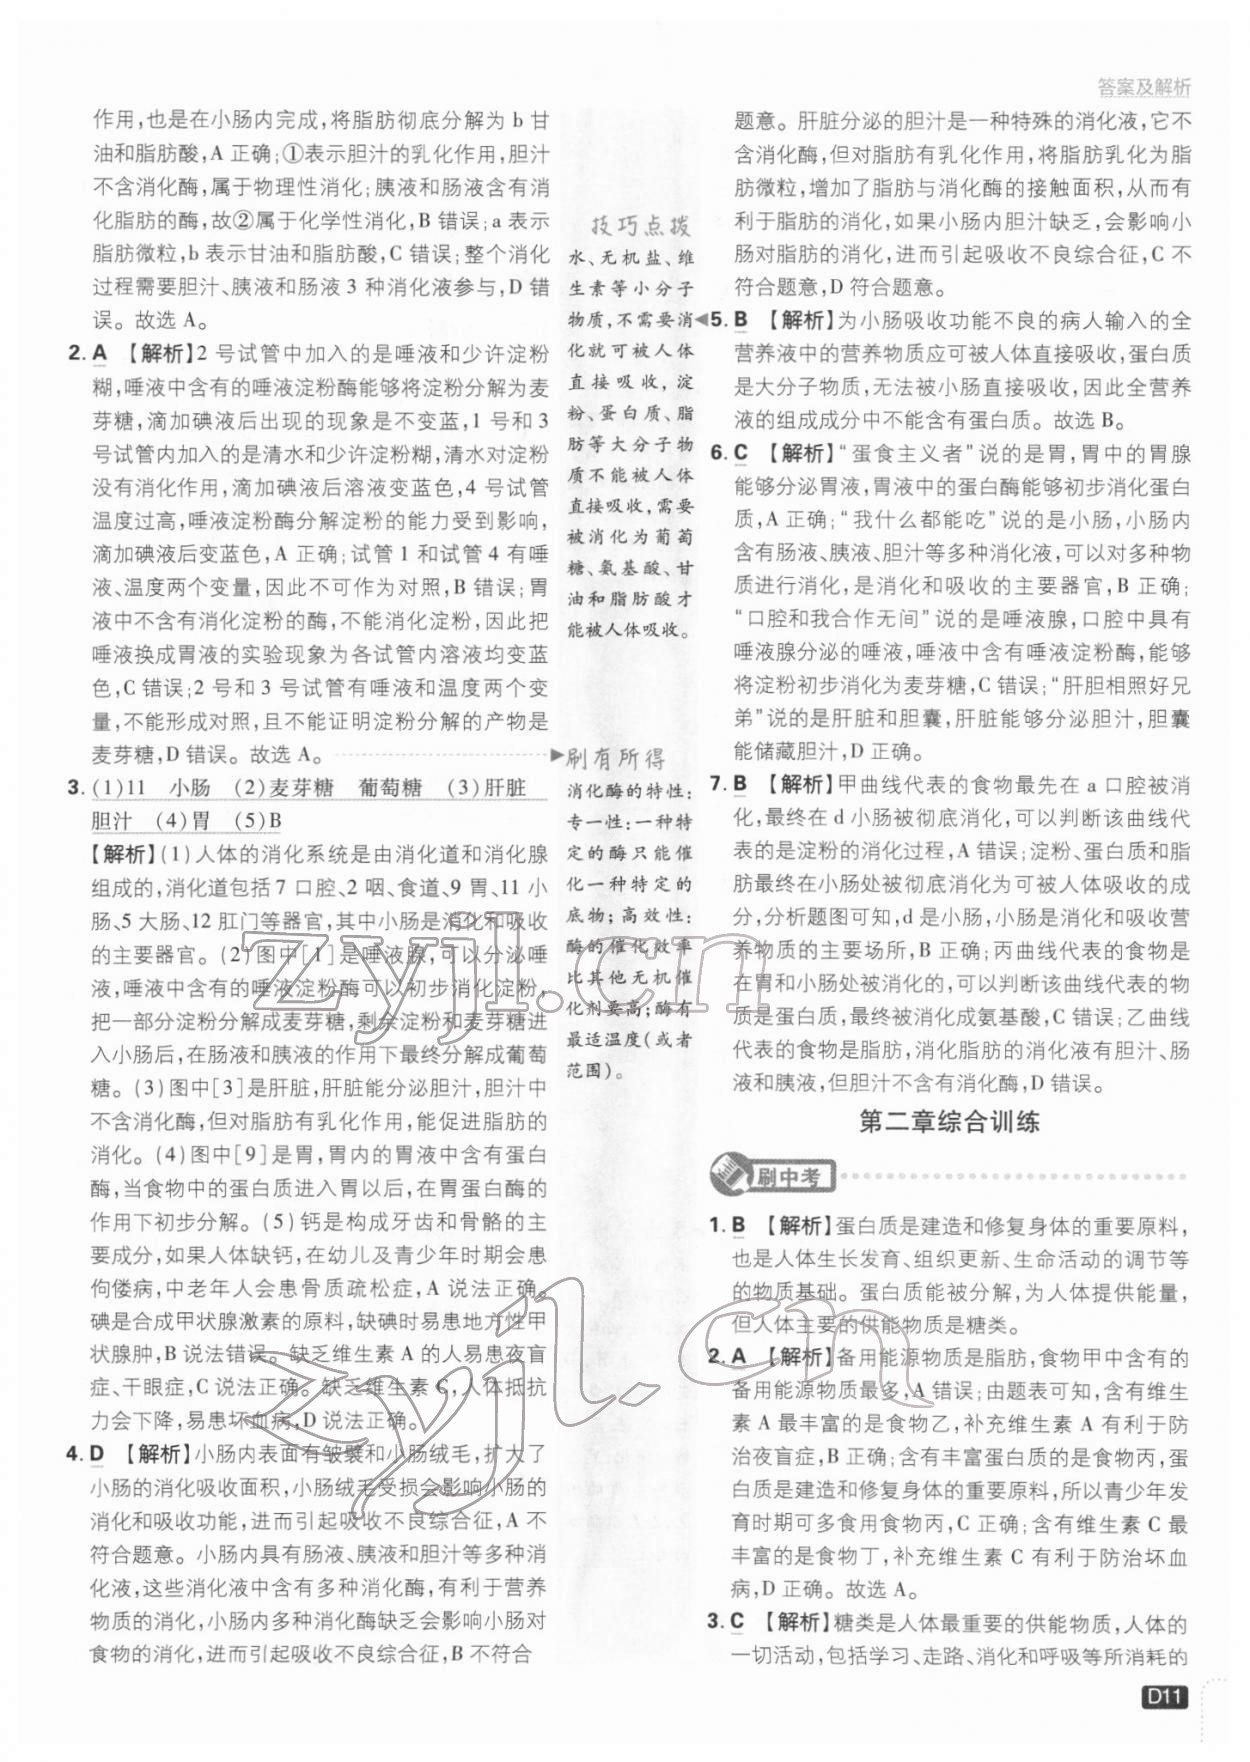 答案及解析
作用,也是在小肠内完成,将脂肪彻底分解为 b 甘
油和脂肪酸,A 正确;①表示胆汁的乳化作用,胆汁
不含消化酶,属于物理性消化;胰液和肠液含有消
化脂肪的酶,故②属于化学性消化,B 错误;a 表示
脂肪微粒,b 表示甘油和脂肪酸,C 错误;整个消化
过程需要胆汁、胰液和肠液 3 种消化液参与,D 错
误。故选 A。
2. A 【解析】2 号试管中加入的是唾液和少许淀粉
糊,唾液中含有的唾液淀粉酶能够将淀粉分解为麦
芽糖,滴加碘液后出现的现象是不变蓝,1 号和 3
号试管内加入的是清水和少许淀粉糊,清水对淀粉
没有消化作用,滴加碘液后溶液变蓝色,4 号试管
温度过高,唾液淀粉酶分解淀粉的能力受到影响,
滴加碘液后变蓝色,A 正确;试管 1 和试管 4 有唾
液、温度两个变量,因此不可作为对照,B 错误;胃
液中不含有消化淀粉的酶,不能消化淀粉,因此把
唾液换成胃液的实验现象为各试管内溶液均变蓝
色,C 错误;2 号和 3 号试管有唾液和温度两个变
量,不能形成对照,且不能证明淀粉分解的产物是
麦芽糖,D 错误。故选 A。
3. (1)11 小肠 (2)麦芽糖 葡萄糖 (3)肝脏
胆汁 (4)胃 (5)B
【解析】(1)人体的消化系统是由消化道和消化腺
组成的,消化道包括 7 口腔、2 咽、食道、9 胃、11 小
肠、5 大肠、12 肛门等器官,其中小肠是消化和吸收
的主要器官。(2)图中[1]是唾液腺,可以分泌唾
液,唾液中含有的唾液淀粉酶可以初步消化淀粉,
把一部分淀粉分解成麦芽糖,剩余淀粉和麦芽糖进
入小肠后,在肠液和胰液的作用下最终分解成葡萄
糖。(3)图中[3]是肝脏,肝脏能分泌胆汁,胆汁中
不含消化酶,但对脂肪有乳化作用,能促进脂肪的
消化。(4)图中[9]是胃,胃内的胃液中含有蛋白
酶,当食物中的蛋白质进入胃以后,在胃蛋白酶的
作用下初步分解。(5)钙是构成牙齿和骨骼的主
要成分,如果人体缺钙,在幼儿及青少年时期会患
佝偻病,中老年人会患骨质疏松症,A 说法正确。
碘是合成甲状腺激素的原料,缺碘时易患地方性甲
状腺肿,B 说法错误。缺乏维生素 A 的人易患夜盲
症、干眼症,C 说法正确。缺乏维生素 C,人体抵抗
力会下降,易患坏血病,D 说法正确。
4. D 【解析】小肠内表面有皱襞和小肠绒毛,扩大了
小肠的消化吸收面积,小肠绒毛受损会影响小肠的
消化和吸收功能,进而引起吸收不良综合征,A 不
符合题意。小肠内具有肠液、胰液和胆汁等多种消
化液,这些消化液中含有多种消化酶,有利于营养
物质的消化,小肠内多种消化酶缺乏会影响小肠对
食物的消化,进而引起吸收不良综合征,B 不符合
技巧点拨
水、无机盐、维
生素等小分子
物质,不需要消
化就可被人体
直接吸收,淀
粉、蛋白质、脂
肪等大分子物
质不能被人体
直接吸收,需要
被消化为葡萄
糖、氨基酸、甘
油和脂肪酸才
能被人体吸收。
刷有所得
消化酶的特性:
专一性:一种特
定的酶只能催
化一种特定的
底物;高效性:
酶的催化效率
比其他无机催
化剂要高;酶有
最适温度(或者
范围)。
题意。肝脏分泌的胆汁是一种特殊的消化液,它不
含消化酶,但对脂肪有乳化作用,将脂肪乳化为脂
肪微粒,增加了脂肪与消化酶的接触面积,从而有
利于脂肪的消化,如果小肠内胆汁缺乏,会影响小
肠对脂肪的消化,进而引起吸收不良综合征,C 不
符合题意,D 符合题意。
5. B 【解析】为小肠吸收功能不良的病人输入的全
营养液中的营养物质应可被人体直接吸收,蛋白质
是大分子物质,无法被小肠直接吸收,因此全营养
液的组成成分中不能含有蛋白质。故选 B。
6. C 【解析】“蛋食主义者”说的是胃,胃中的胃腺
能够分泌胃液,胃液中的蛋白酶能够初步消化蛋白
质,A 正确;“我什么都能吃”说的是小肠,小肠内
含有肠液、胰液、胆汁等多种消化液,可以对多种物
质进行消化,是消化和吸收的主要器官,B 正确;
“口腔和我合作无间”说的是唾液腺,口腔中具有
唾液腺分泌的唾液,唾液中含有唾液淀粉酶,能够
将淀粉初步消化为麦芽糖,C 错误;“肝胆相照好兄
弟”说的是肝脏和胆囊,肝脏能够分泌胆汁,胆囊
能储藏胆汁,D 正确。
7. B 【解析】甲曲线代表的食物最先在 a 口腔被消
化,最终在 d 小肠被彻底消化,可以判断该曲线代
表的是淀粉的消化过程,A 错误;淀粉、蛋白质和脂
肪最终在小肠处被彻底消化为可被人体吸收的成
分,分析题图可知,d 是小肠,小肠是消化和吸收营
养物质的主要场所,B 正确;丙曲线代表的食物是
在胃和小肠处被消化的,可以判断该曲线代表的物
质是蛋白质,最终被消化成氨基酸,C 错误;乙曲线
代表的食物是脂肪,消化脂肪的消化液有胆汁、肠
液和胰液,但胆汁不含有消化酶,D 错误。
第二章综合训练
刷中考
1. B 【解析】蛋白质是建造和修复身体的重要原料,
也是人体生长发育、组织更新、生命活动的调节等
的物质基础。蛋白质能被分解,为人体提供能量,
但人体主要的供能物质是糖类。
2. A 【解析】备用能源物质是脂肪,食物甲中含有的
备用能源物质最多,A 错误;由题表可知,含有维生
素 A 最丰富的是食物乙,补充维生素 A 有利于防
治夜盲症,B 正确;含有丰富蛋白质的是食物丙,蛋
白质是建造和修复身体的重要原料,所以青少年发
育时期可多食用食物丙,C 正确;含有维生素 C 最
丰富的是食物丁,补充维生素 C 有利于防治坏血
病,D 正确。故选 A。
3. C 【解析】糖类是人体最重要的供能物质,人体的
一切活动,包括学习、走路、消化和呼吸等所消耗的
D11
zyjl.cn
zyjl.cn